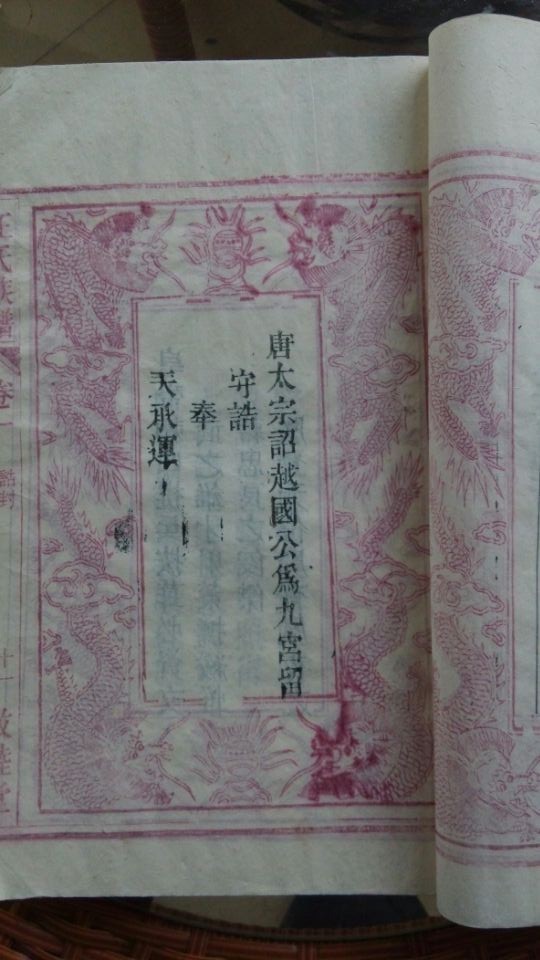 唐太宗詔越國公爲九宮留
守誥
奉
天承運
汪氏族譜 卷一 誥封 十一 敦睦堂